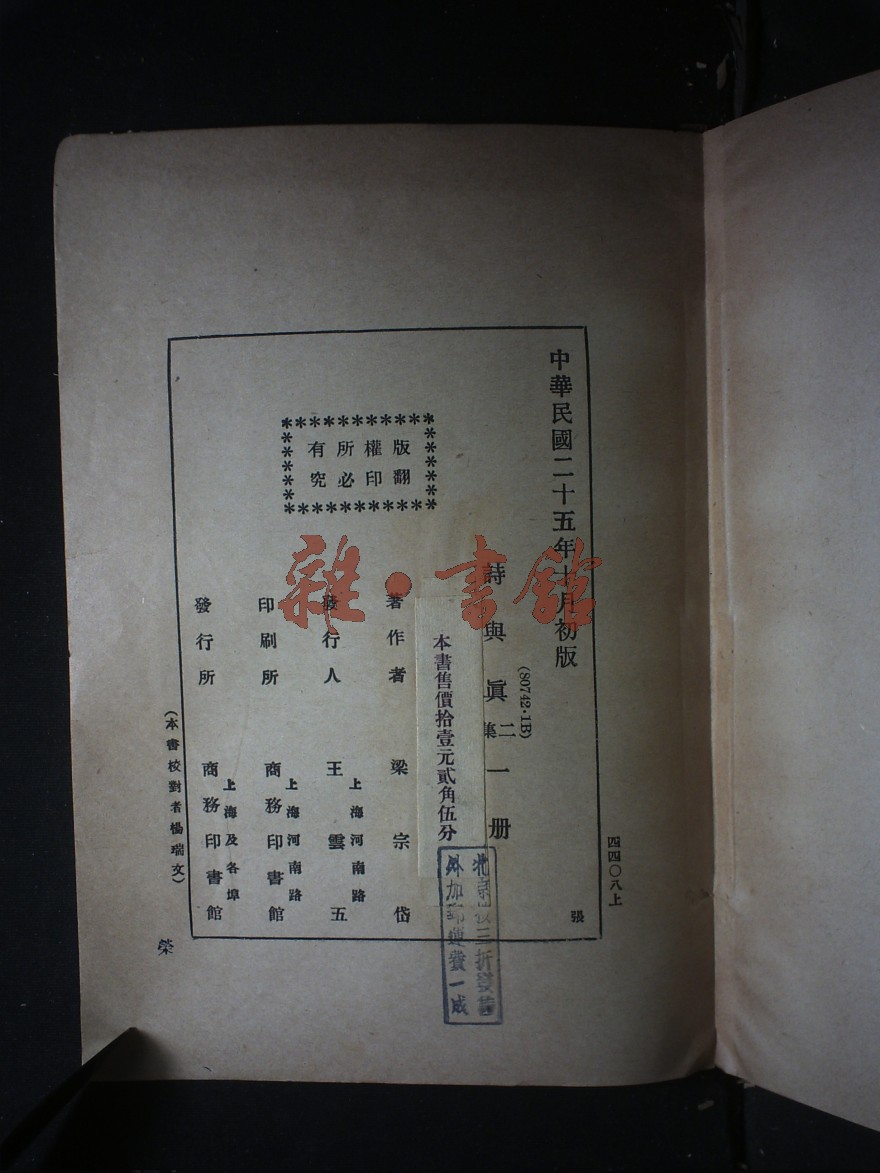 四四〇八上
張
中華民國二十五年十月初版
(80742·1B)
詩與眞二集一册
本書售價拾壹元貳角伍分
外加郵運費一成
版權所有
翻印必究
著作者 梁宗岱
發行人 王雲五
上海河南路
印刷所 商務印書館
上海河南路
發行所 商務印書館
上海及各埠
(本書校對者楊瑞文)
榮
雜·書館